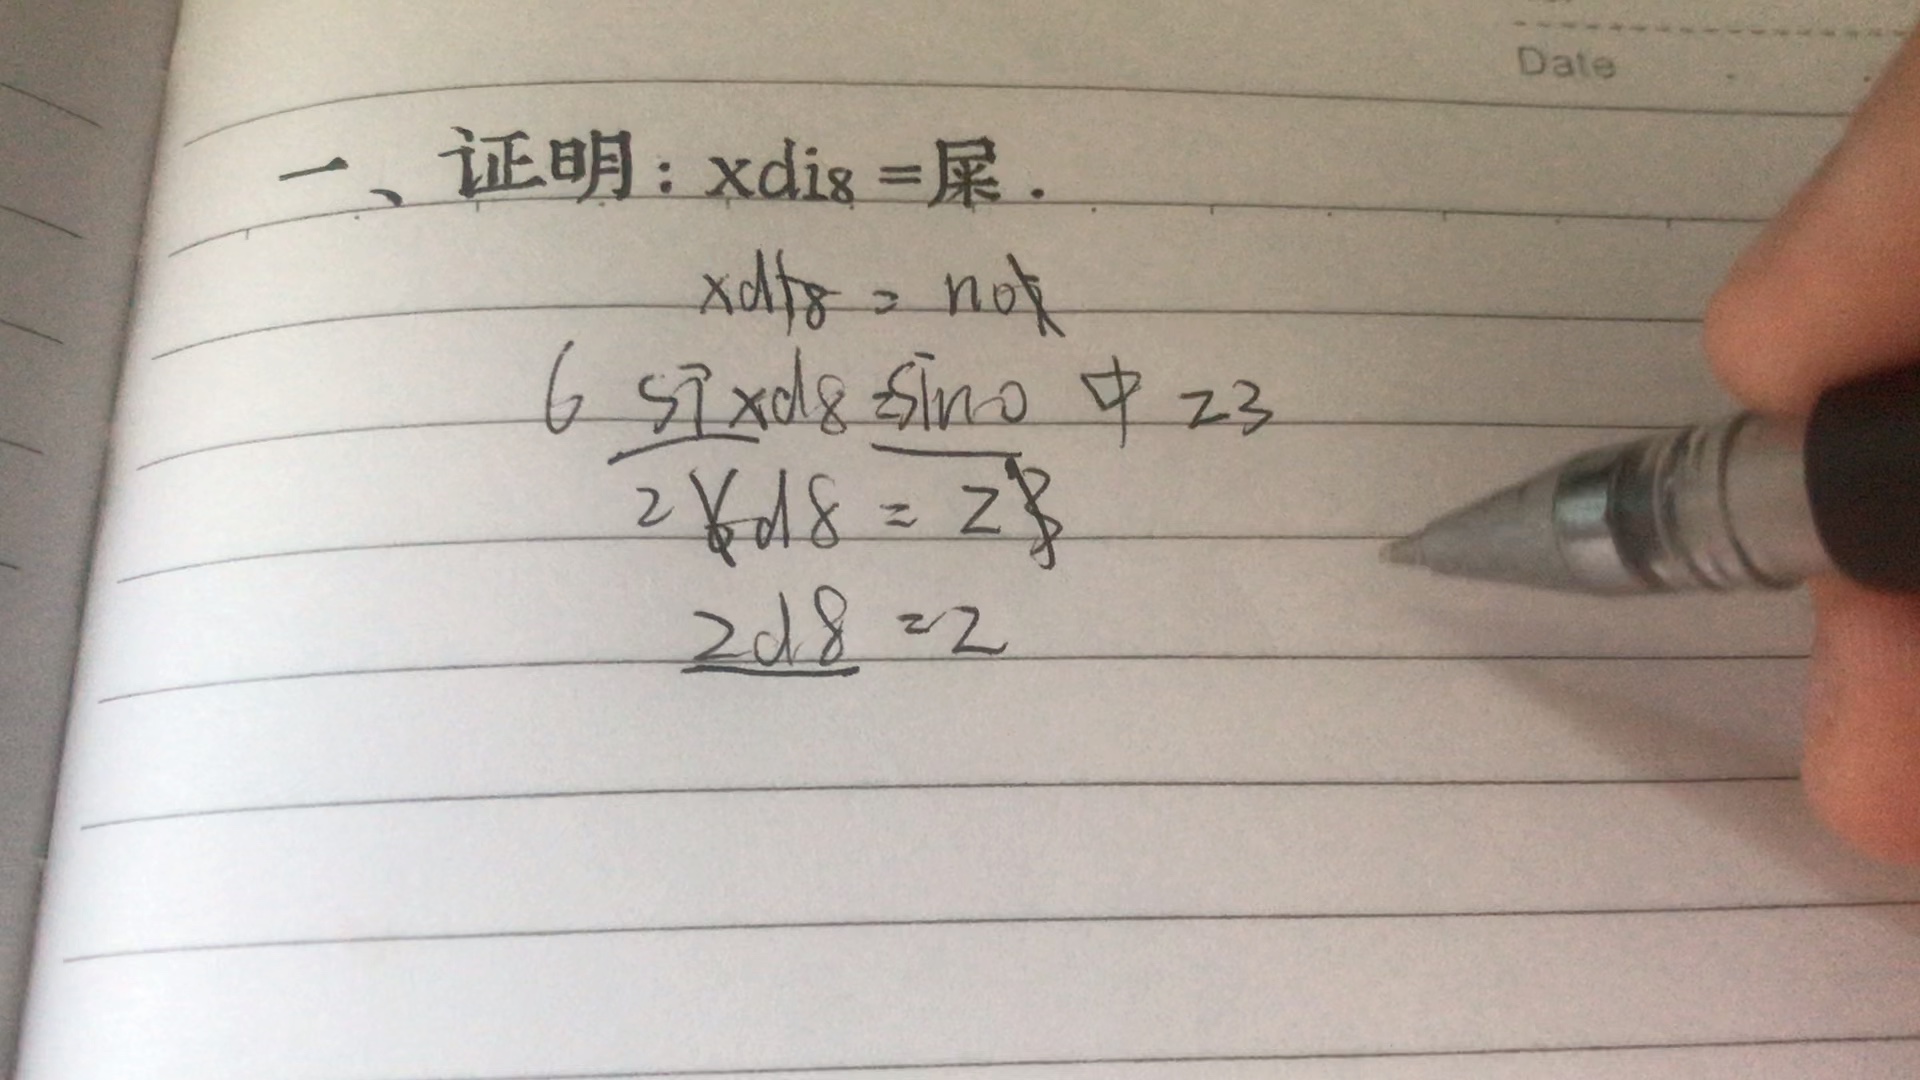 Date
一、证明：xdi8=屎.
xdi8 = not
6 sixd8 = sino 中 z3
26d8 = z3
2d8 = 2